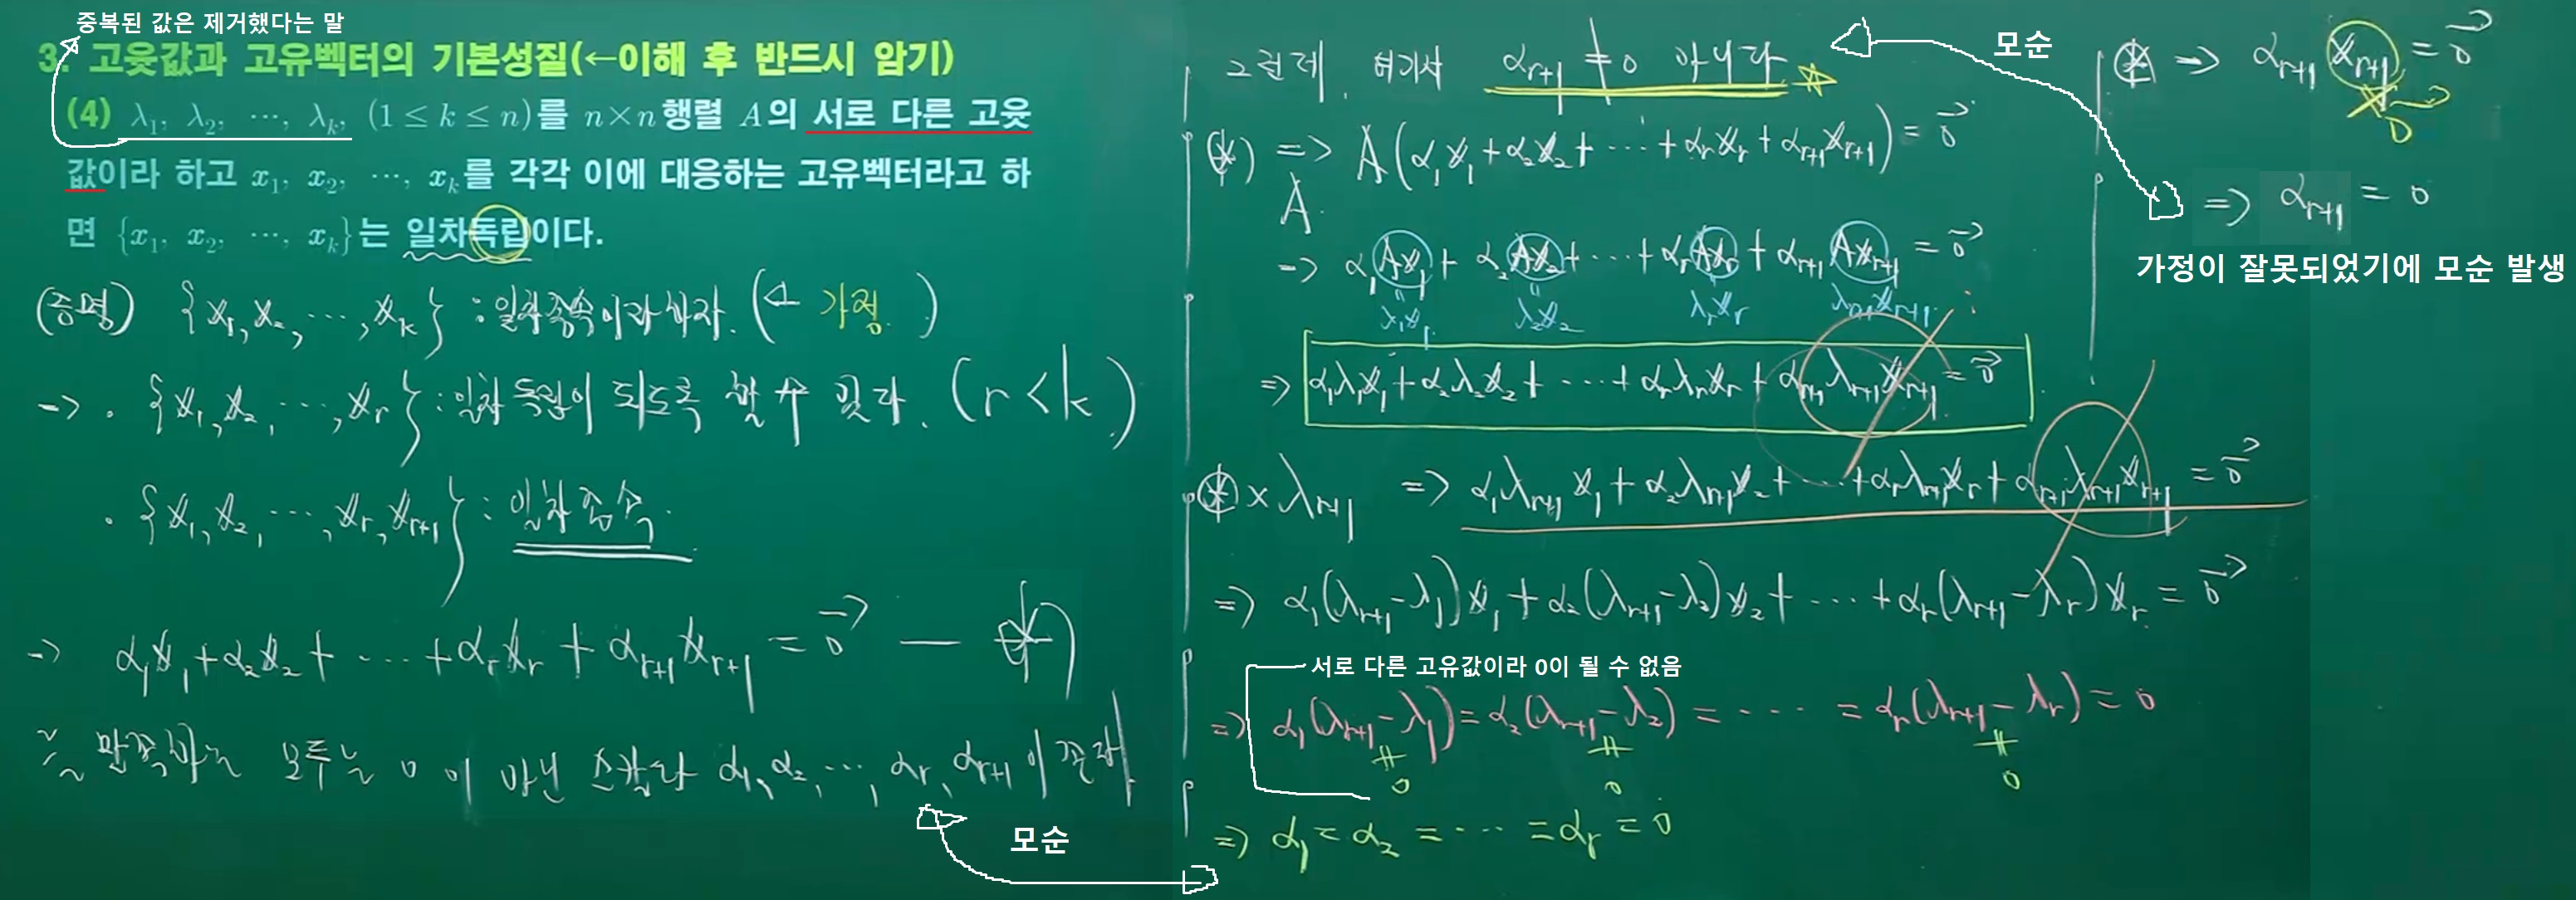 중복된 값은 제거했다는 말
3. 고윳값과 고유벡터의 기본성질(←이해 후 반드시 암기)
(4) λ₁, λ₂, ⋯, λₖ, (1 ≤ k ≤ n)를 n×n 행렬 A의 서로 다른 고윳
값이라 하고 x₁, x₂, ⋯, xₖ를 각각 이에 대응하는 고유벡터라고 하
면 {x₁, x₂, ⋯, xₖ}는 일차독립이다.
(증명) {x₁, x₂, ⋯, xₖ} : 일차종속이라 하자. (← 가정)
→ · {x₁, x₂, ⋯, xᵣ} : 일차독립이 되도록 할 수 있다. (r < k)
· {x₁, x₂, ⋯, xᵣ, xᵣ₊₁} : 일차종속.
→ α₁x₁ + α₂x₂ + ⋯ + αᵣxᵣ + αᵣ₊₁xᵣ₊₁ = 0⃗ — (*)
를 만족하는 모두는 0이 아닌 스칼라 α₁, α₂, ⋯, αᵣ, αᵣ₊₁이 존재
모순
그런데, 여기서 αᵣ₊₁ ≠ 0 아니다 ☆
모순
(*) ⇒ A(α₁x₁ + α₂x₂ + ⋯ + αᵣxᵣ + αᵣ₊₁xᵣ₊₁) = 0⃗
A
→ α₁Ax₁ + α₂Ax₂ + ⋯ + αᵣAxᵣ + αᵣ₊₁Axᵣ₊₁ = 0⃗
λ₁x₁ λ₂x₂ λᵣxᵣ λᵣ₊₁xᵣ₊₁
⇒ α₁λ₁x₁ + α₂λ₂x₂ + ⋯ + αᵣλᵣxᵣ + αᵣ₊₁λᵣ₊₁xᵣ₊₁ = 0⃗
(*) × λᵣ₊₁ ⇒ α₁λᵣ₊₁x₁ + α₂λᵣ₊₁x₂ + ⋯ + αᵣλᵣ₊₁xᵣ + αᵣ₊₁λᵣ₊₁xᵣ₊₁ = 0⃗
⇒ α₁(λᵣ₊₁ - λ₁)x₁ + α₂(λᵣ₊₁ - λ₂)x₂ + ⋯ + αᵣ(λᵣ₊₁ - λᵣ)xᵣ = 0⃗
서로 다른 고유값이라 0이 될 수 없음
⇒ α₁(λᵣ₊₁ - λ₁) = α₂(λᵣ₊₁ - λ₂) = ⋯ = αᵣ(λᵣ₊₁ - λᵣ) = 0
≠ ≠ ≠
0 0 0
⇒ α₁ = α₂ = ⋯ = αᵣ = 0
(*) ⇒ αᵣ₊₁xᵣ₊₁ = 0⃗
≠ 0⃗
⇒ αᵣ₊₁ = 0
가정이 잘못되었기에 모순 발생